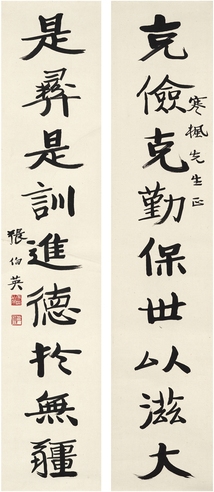 克儉克勤保世以滋大
寒楓先生正
是彝是訓進德於無疆
張伯英